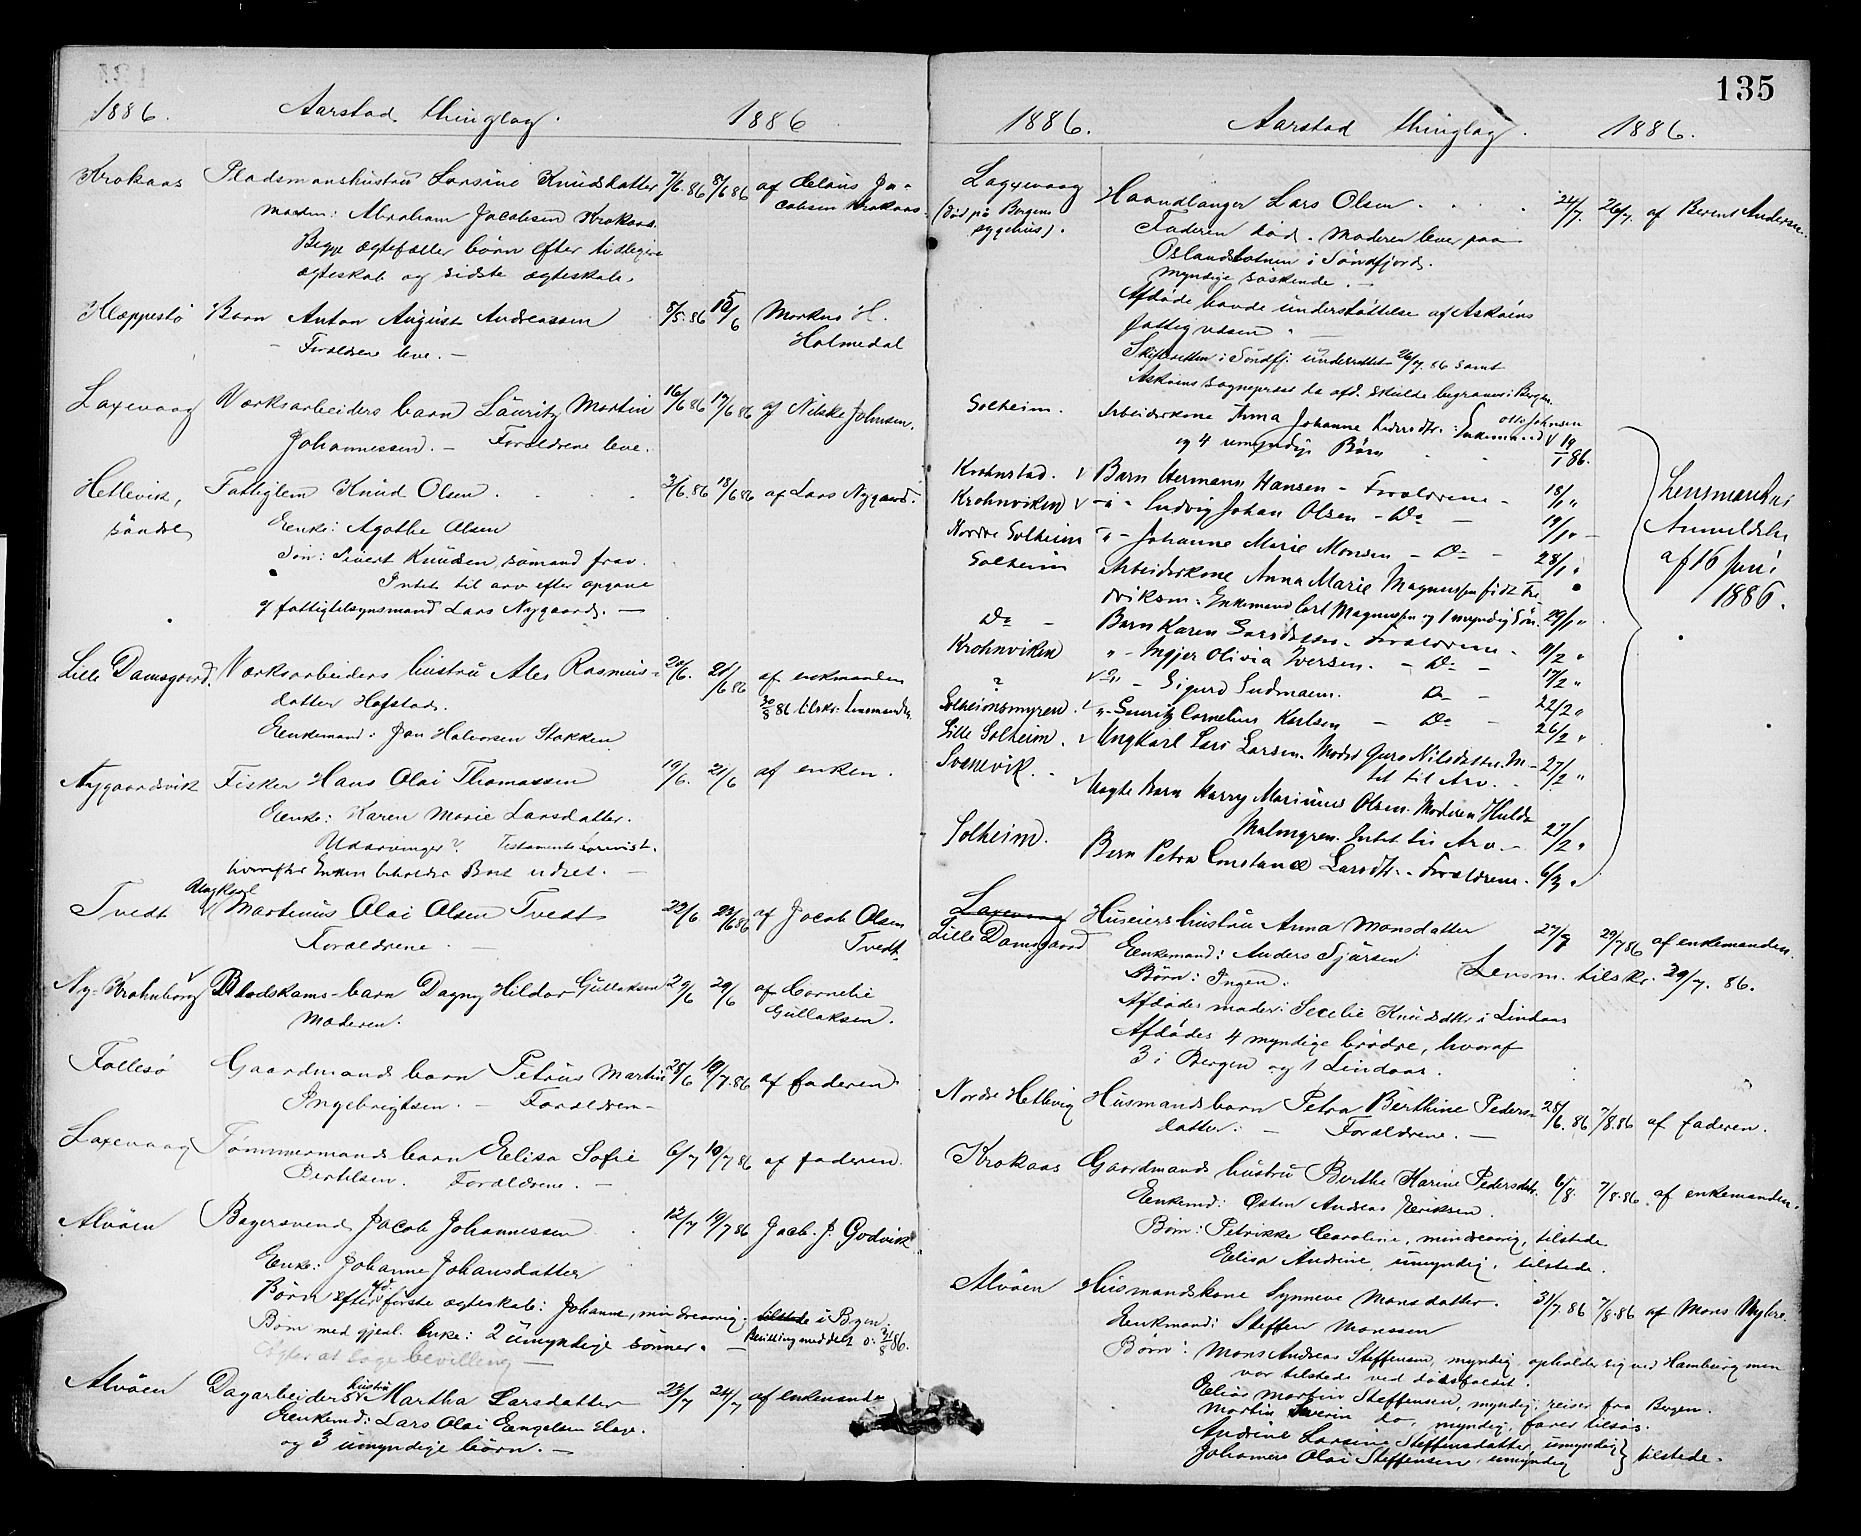 135
1886. Aarstad thinglag. 1886
Krokaas Pladsmanshustru Larsine Knudsdatter 7/6 86 8/6 86 af Claus Ja-
cobsen Krokaas.
Manden: Abraham Jacobsen Krokaas.
Begge ægtefæller børn efter tidligere
ægteskab og sidste ægteskab.
Kleppestø Barn Anton August Andreassen 8/5 86 15/6 Markus H.
Forældrene leve. - Holmedal
Laxevaag Værksarbeiders barn Lauritz Martin 16/6 86 17/6 86 af Nilske Johnsen.
Johannessen. - Forældrene leve.
Hetlevik, Fattiglem Knud Olsen . . . 3/6 86 18/6 86 af Lars Nygaard.
søndre Enke: Agathe Olsen
Søn: Sivert Knudsen, sømand frav.
Intet til arv efter opgave
af fattigtilsynsmand Lars Nygaard. -
Lille Damsgaard. Værksarbeiders hustru Ales Rasmus- 20/6. 21/6 86 af enkemanden
datter Hafstad. 30/8 86 tilskr. lensmanden
Enkemand: Jan Halvorsen Stokken
Nygaardsvik Fisker Hans Olai Thomassen 19/6. 21/6 af enken.
Enke: Karen Marie Larsdatter.
Udarvinger? Testamente forevist.
hvorefter Enken beholder Boet udelt. -
Ungkarl
Tvedt Martinus Olai Olsen Tvedt 22/6 23/6 86 af Jacob Olsen
Forældrene. - Tvedt
Ny-Krohnborg Pladskams-barn Dagny Hildor Gullaksen 29/6 29/6 af Cornelie
Moderen. Gullaksen.
Follesø Gaardmands barn Petrus Martin 28/6 10/7.86 af faderen
Ingebrigtsen. - Forældrene-
Laxevaag Tømmermands barn Elisa Sofie 6/7 10/7 86 af faderen.
Bertelsen. Forældrene. -
Alvøen Bagersvend Jacob Johannessen 12/7 19/7 86 Jacb. J. Godvik
Enke: Johanne Johansdatter
Børn efter afd. første ægteskab: Johanne, mindreaarig, tilstede i Bergen.
Børn med gjenl. enke: 2 umyndige sønner. - Bevilling meddelt d. 31/8 86.
Agter at søge bevilling -
Alvøen Dagarbeiders hustru Martha Larsdatter 23/7 24/7 af enkemanden
Enkemd: Lars Olai Engelsen Hage.
og 3 umyndige børn. -
1886. Aarstad thinglag. 1886.
Laxevaag Haandlanger Lars Olsen . . . . 24/7. 26/7. af Berent Andersen.
(død på Bergens
sygehus).
Faderen død. Moderen lever paa
Oslandsbotnen i Søndfjord.
Myndige søskende. -
Afdøde havde understøttelse af Askøens
fattigvæsen -
Skifteretten i Søndfj. underrettet 26/7. 86 samt
Askøens sognepræst da afd. skulde begraves i Bergen.
Solheim. Arbeiderkone Anna Johanne Pedersdtr. Enkemand Otto Johnsen
og 4 umyndige Børn 19/1 86.
Krohnstad. Barn Hermann Hansen - Forældrene - 18/1 "
Krohnviken -"- Ludvig Johan Olsen - Do - 19/1 "
Nordre Solheim -"- Johanne Marie Monsen - Do - 28/1 "
Solheim Arbeiderkone Anna Marie Magnussen født Fre
driksen. Enkemand Carl Magnussen og 1 myndig Søn. 29/1 "
Do - Barn Karen Larsdatter. Forældrene - 11/2 "
Krohnviken " - Ingjer Olivia Iversen. - Do - 17/2 "
? " - Sigurd Gudmann. Do - 22/2 "
Solheimsmyren. " - Lauritz Cornelius Karlsen - Do - 26/2 "
Lille Solheim. Ungkarl Lars Larsen. Moder Guro Nilsdatter. In- 27/2 "
tet til Arv.
Svanevik. - Uægte Barn Harry Marinius Olsen. Moderen Hulda
Malmgren. Intet til Arv. - 27/2 "
Solheim. Barn Petra Constance Larsdtr. - Forældrene. 6/3 "
Lensmandens
Anmeldelse
af 16 Juni
1886.
Laxevaag Huseiers hustru Anna Monsdatter 27/7 29/7 86 af enkemanden.
Lille Damsgaard Enkemand: Anders Sjursen
Børn: Ingen. Lensm. tilskr. 29/7. 86.
Afdødes moder: Secelie Knudsdtr i Lindaas
Afdødes 4 myndige brødre, hvoraf
3 i Bergen og 1 Lindaas.
Nordre Hetlevig Husmands barn Petra Berthine Peders- 28/6. 86 7/8.86 af faderen.
datter. - Forældrene. -
Krokaas Gaardmands hustru Berthe Karine Pedersdtr. 6/8. 7/8.86. af enkemanden.
Enkemd: Østen Andreas Eriksen.
Børn: Petrikke Caroline, mindreaarig, tilstede
Elisa Andrine, umyndig, tilstede.
Alvøen Husmandskone Synneve Monsdatter. 31/7.86 7/8.86 af Mons Myhre.
Enkemand: Steffen Monssen
Børn: Mons Andreas Steffensen, myndig, opholder sig ved Hamburg men
var tilstede ved dødsfaldet.
Elias Martin Steffensen, myndig, reiser fra Bergen.
Martin Severin do, myndig, farer tilsøs.
Andrine Larsine Steffensdatter, umyndig
Johannes Olai Steffensen, umyndig } tilstede.